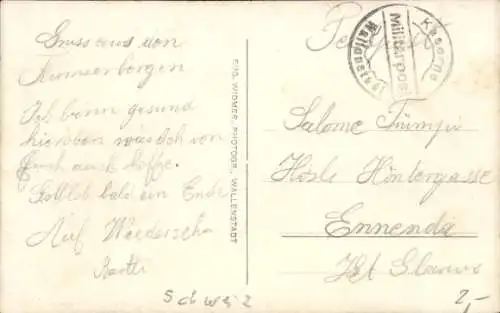 Gruss aus von
Kerenzerbergen
Ich binn gesund
hieroben was ich von
Euch auch hoffe.
Sollob bald ein Ende
Auf Wiederseha
Bartli
PHG. WIDMER, PHOTOGR., WALLENSTADT
Feldpost
Kaserne
Militärpost
Wallenstadt
Salome Trümpi
Hösli Hintergasse
Ennenda
Kt Glarus
Schweiz
2,-